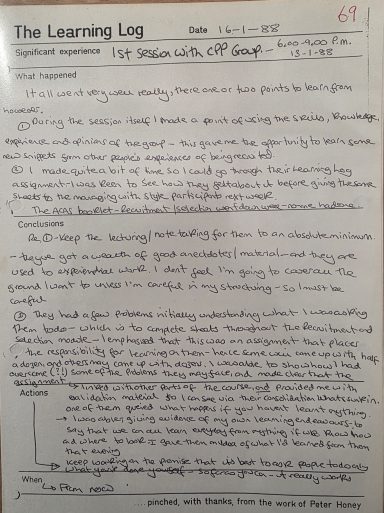 69
The Learning Log Date 16-1-88
Significant experience 1st Session with CPP Group. - 6.00-9.00 p.m. 13-1-88
What happened
It all went very well really, there one or two points to learn from
however.
① During the session itself I made a point of using the skills, knowledge,
experience and opinions of the group - this gave me the opportunity to learn some
new snippets from other people's experiences of being recruited.
② I made quite a bit of time so I could go through their Learning Log
assignment - I was keen to see how they get about it before giving the same
sheets to the managing with style participants next week
The ACAS booklet - Recruitment/Selection went down well - none had one.
Conclusions
Re ① - Keep the lecturing/note taking for them to an absolute minimum.
- they've got a wealth of good anecdotes/material - and they are
used to experiential work. I don't feel I'm going to cover all the
ground I want to unless I'm careful in my structuring - so I must be
careful
② They had a few problems initially understanding what I was asking
them to do - which is to complete sheets throughout the Recruitment and
Selection module - I emphasised that this was an assignment that places
the responsibility for learning on them - hence some will come up with half
a dozen and others may come up with dozens. I was able to show how I had
overcome (?!) some of the problems they may face, and made clear that the
assignment
linked with other parts of the course, and provided me with
validation material so I can see via their consolidation what's sunk in.
one of them queried what happens if you haven't learnt anything.
Actions
- I was able, giving evidence of my own learning endeavours to
say that we can all learn everyday from anything if we know how
and where to look. I gave them an idea of what I'd learned from them
that evening
Keep working on the premise that it's best to ask people to do only
what you've done yourself - so far as you can - it really works
When
From now!
pinched, with thanks, from the work of Peter Honey